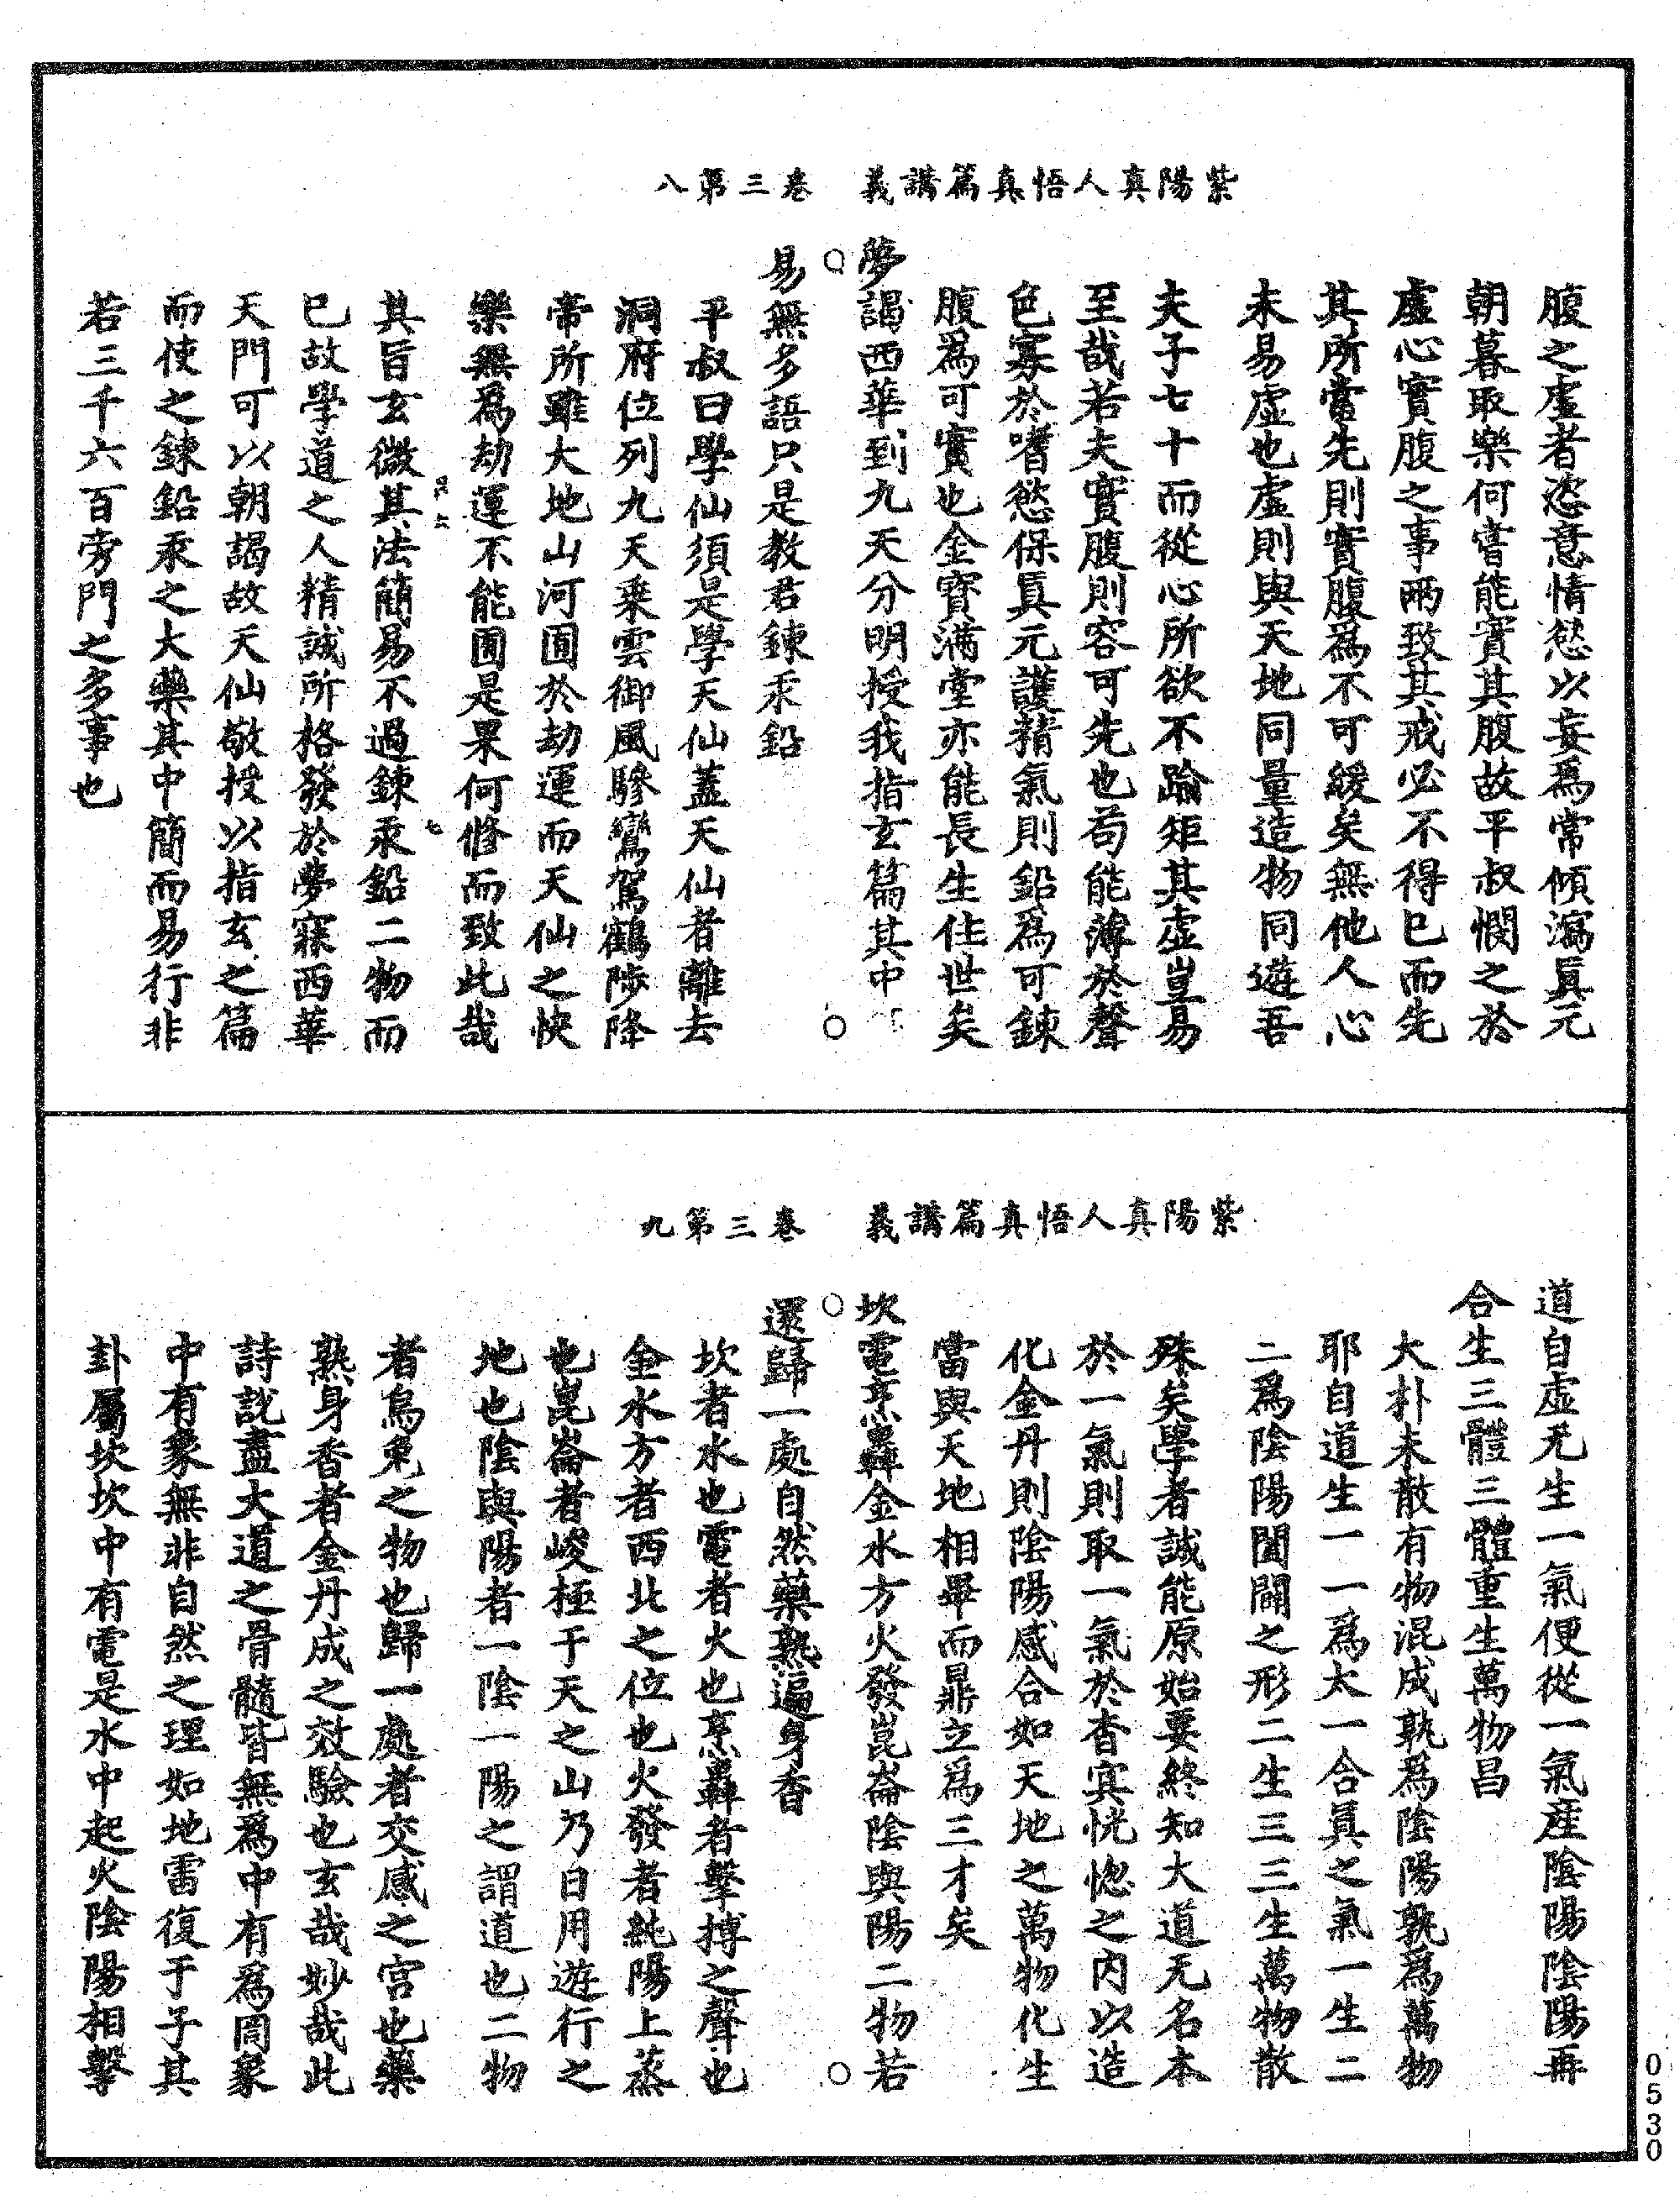 紫陽真人悟真篇講義　卷三第八
腹之虛者恣意情慾以妄爲常傾瀉眞元
朝暮取樂何嘗能實其腹故平叔憫之於
虛心實腹之事兩致其戒必不得已而先
其所當先則實腹爲不可緩矣無他人心
未易虛也虛則與天地同量造物同遊吾
夫子七十而從心所欲不踰矩其虛豈易
至哉若夫實腹則容可先也苟能薄於聲
色寡於嗜慾保眞元護精氣則鉛爲可鍊
腹爲可實也金寶滿堂亦能長生住世矣
夢謁西華到九天分明授我指玄篇其中
易無多語只是教君鍊汞鉛
平叔曰學仙須是學天仙蓋天仙者離去
洞府位列九天乘雲御風驂鸞駕鶴陟降
帝所雖大地山河囿於劫運而天仙之快
樂無爲劫運不能囿是果何修而致此哉
其旨玄微其法簡易不過鍊汞鉛二物而
已故學道之人精誠所格發於夢寐西華
天門可以朝謁故天仙敬授以指玄之篇
而使之鍊鉛汞之大藥其中簡而易行非
若三千六百旁門之多事也
紫陽真人悟真篇講義　卷三第九
道自虛无生一氣便從一氣產陰陽陰陽再
合生三體三體重生萬物昌
大朴未散有物混成孰爲陰陽孰爲萬物
耶自道生一一爲太一合眞之氣一生二
二爲陰陽闔闢之形二生三三生萬物散
殊矣學者誠能原始要終知大道无名本
於一氣則取一氣於杳冥恍惚之內以造
化金丹則陰陽感合如天地之萬物化生
當與天地相畢而鼎立爲三才矣
坎電烹轟金水方火發崑崙陰與陽二物若
還歸一處自然藥熟遍身香
坎者水也電者火也烹轟者擊搏之聲也
金水方者西北之位也火發者純陽上蒸
也崑崙者峻極于天之山乃日月遊行之
地也陰與陽者一陰一陽之謂道也二物
者烏兔之物也歸一處者交感之宮也藥
熟身香者金丹成之效驗也玄哉妙哉此
詩說盡大道之骨髓皆無爲中有爲罔象
中有象無非自然之理如地雷復于子其
卦屬坎坎中有電是水中起火陰陽相擊
0530